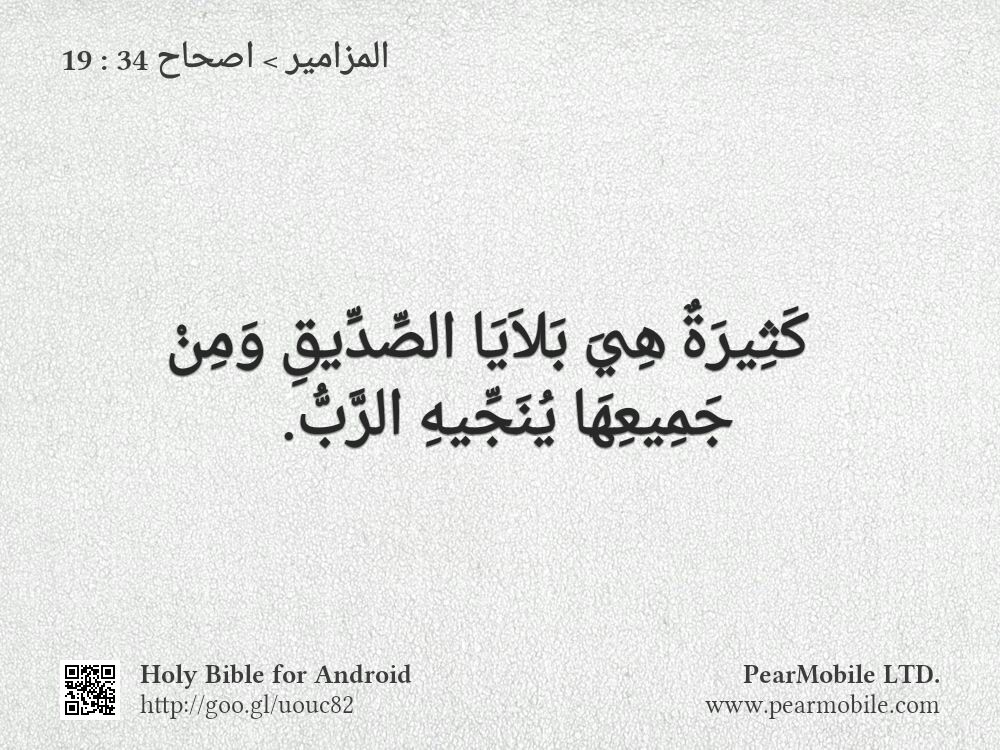 المزامير > اصحاح 34 : 19
كَثِيرَةٌ هِيَ بَلاَيَا الصِّدِّيقِ وَمِنْ
جَمِيعِهَا يُنَجِّيهِ الرَّبُّ.
Holy Bible for Android
http://goo.gl/uouc82
PearMobile LTD.
www.pearmobile.com